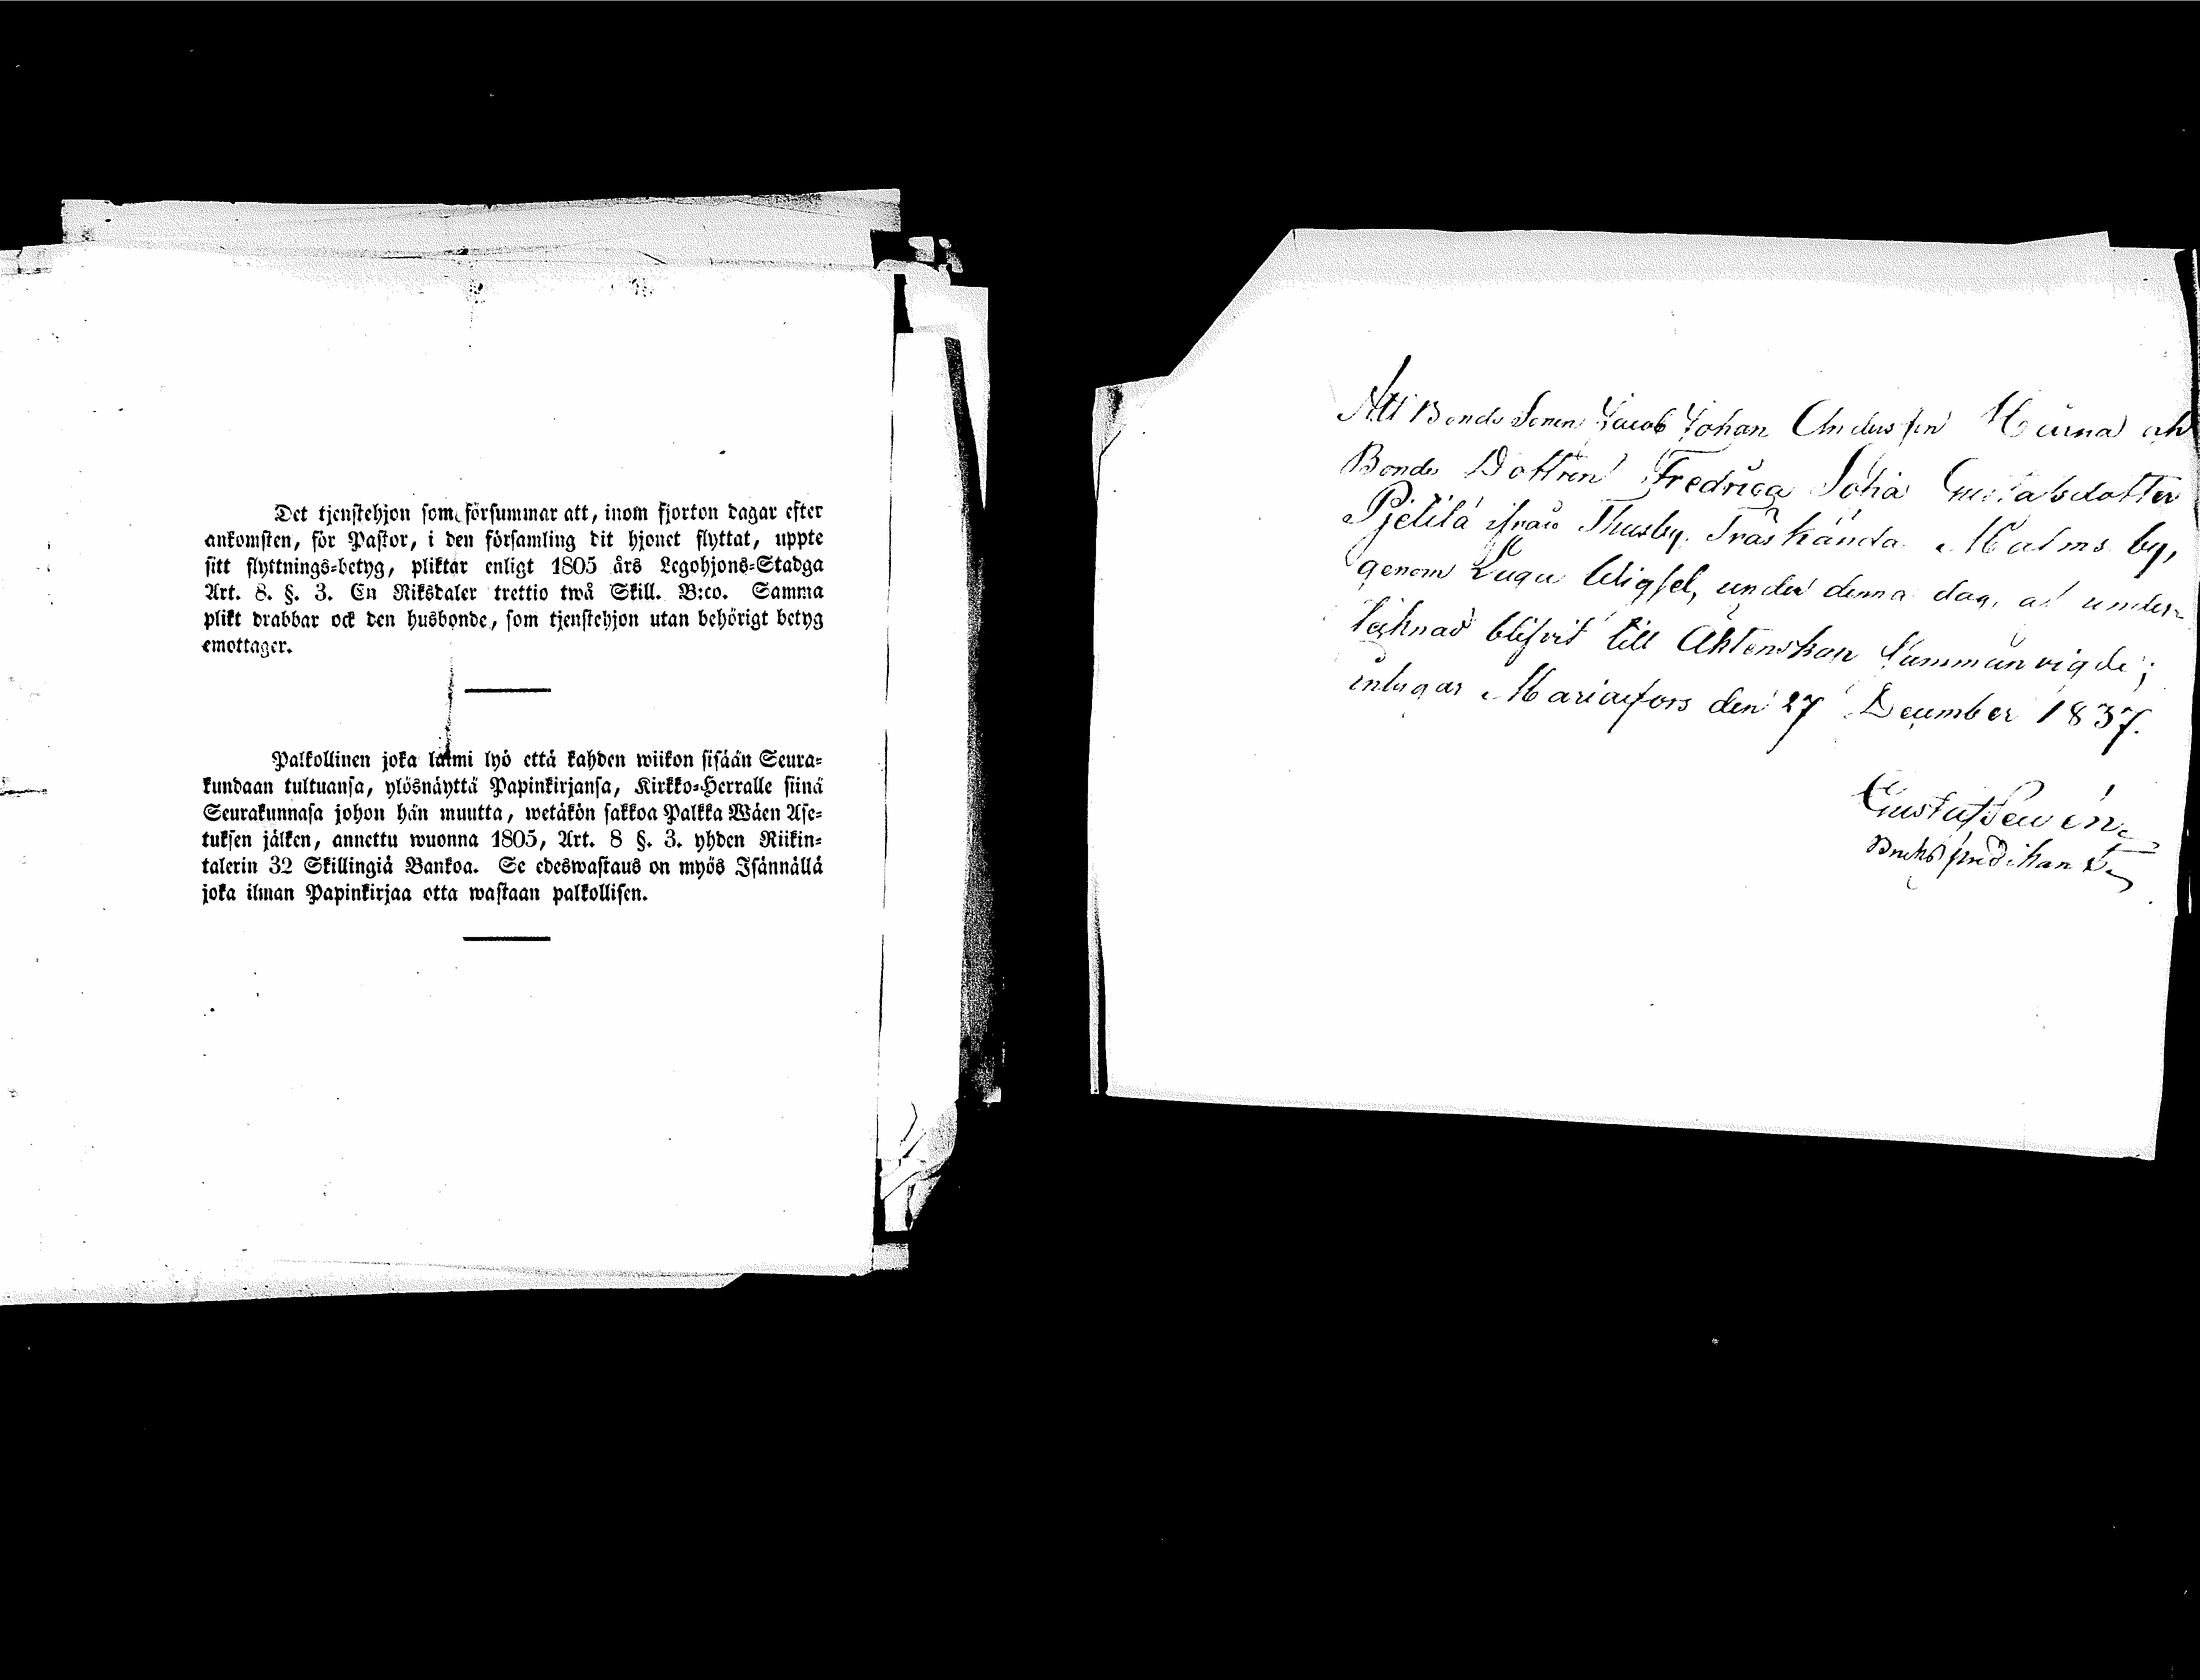 Det tjenstehjon som försummar att, inom fjorton dagar efter
ankomsten, för Pastor, i den församling dit hjonet flyttat, uppte
sitt flyttnings-betyg, pliktar enligt 1805 års Legohjons-Stadga
Art. 8. §. 3. En Riksdaler trettio twå Skill. B:co. Samma
plikt drabbar ock den husbonde, som tjenstehjon utan behörigt betyg
emottager.
Palkollinen joka laimi lyö että kahden wiikon sisään Seura-
kundaan tultuansa, ylösnäyttä Papinkirjansa, Kirkko-Herralle siinä
Seurakunnasa johon hän muutta, wetäkön sakkoa Palkka Wäen Ase-
tuksen jälken, annettu wuonna 1805, Art. 8 §. 3. yhden Riikin-
talerin 32 Skillingiä Bankoa. Se edeswastaus on myös Isännällä
joka ilman Papinkirjaa otta wastaan palkollisen.
Att Bonde Sonen Jacob Johan Andersson och
Bonde Dottren Fredrica Sofia Gustafsdotter
Pjelilä ifrån Thusby Träskända Malms by,
genom Laga Wigsel, under denna dag, af under-
tecknad blifvit till Äktenskap Sammanvigde;
intygar Mariæfors den 27 December 1837.
Gustaf
Bruks predikant